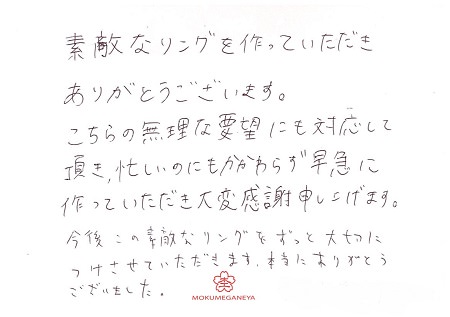 素敵なリングを作っていただき
ありがとうございます。
こちらの無理な要望にも対応して
頂き、忙しいのにもかかわらず早急に
作っていただき大変感謝申し上げます。
今後この素敵なリングをずっと大切に
つけさせていただきます。本当にありがとう
ございました。
MOKUMEGANEYA